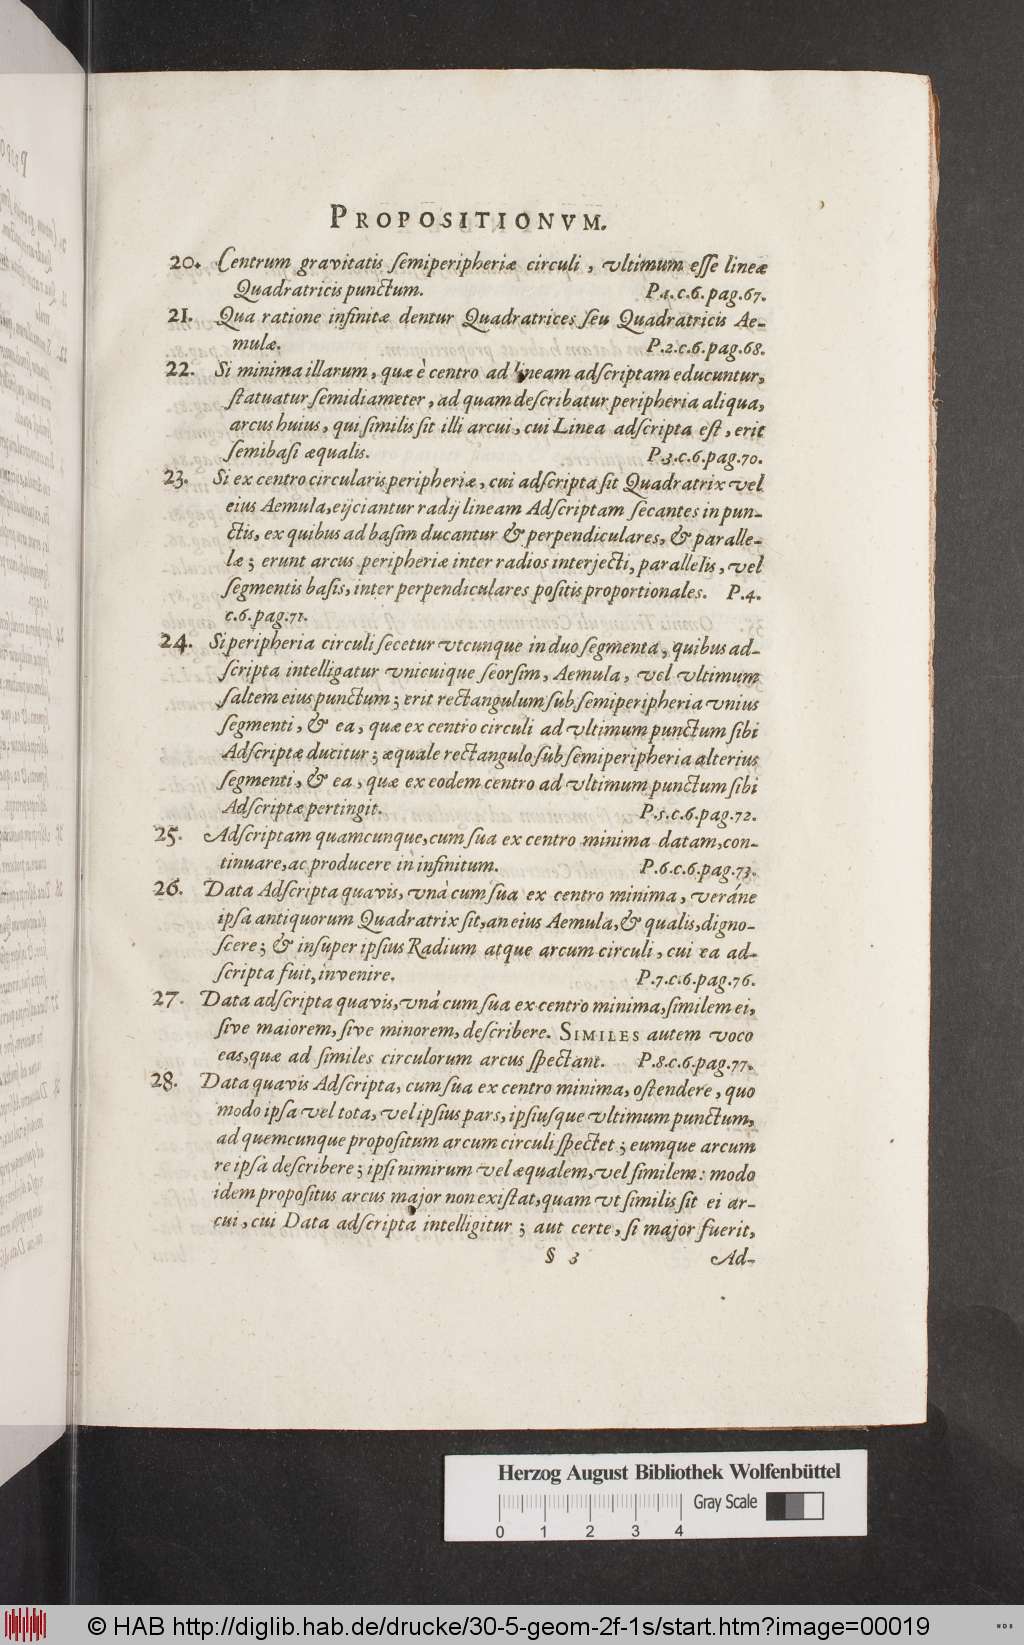 PROPOSITIONVM.
20. Centrum gravitatis semiperipheriæ circuli, vltimum esse lineæ
Quadratricis punctum. P.1.c.6.pag.67.
21. Qua ratione infinitæ dentur Quadratrices seu Quadratricis Ae-
mulæ. P.2.c.6.pag.68.
22. Si minima illarum, quæ è centro ad lineam adscriptam educuntur,
statuatur semidiameter, ad quam describatur peripheria aliqua,
arcus huius, qui similis sit illi arcui, cui Linea adscripta est, erit
semibasi æqualis. P.3.c.6.pag.70.
23. Si ex centro circularis peripheriæ, cui adscripta sit Quadratrix vel
eius Aemula, eijciantur radij lineam Adscriptam secantes in pun-
ctis, ex quibus ad basim ducantur & perpendiculares, & paralle-
læ; erunt arcus peripheriæ inter radios interjecti, parallelis, vel
segmentis basis, inter perpendiculares positis proportionales. P.4.
c.6.pag.71.
24. Si peripheria circuli secetur vtcunque in duo segmenta, quibus ad-
scripta intelligatur vnicuique seorsim, Aemula, vel vltimum
saltem eius punctum; erit rectangulum sub semiperipheria vnius
segmenti, & ea, quæ ex centro circuli ad vltimum punctum sibi
Adscriptæ ducitur; æquale rectangulo sub semiperipheria alterius
segmenti, & ea, quæ ex eodem centro ad vltimum punctum sibi
Adscriptæ pertingit. P.5.c.6.pag.72.
25. Adscriptam quamcunque, cum sua ex centro minima datam, con-
tinuare, ac producere in infinitum. P.6.c.6.pag.73.
26. Data Adscripta quavis, vnà cum sua ex centro minima, veráne
ipsa antiquorum Quadratrix sit, an eius Aemula, & qualis, digno-
scere; & insuper ipsius Radium atque arcum circuli, cui ea ad-
scripta fuit, invenire. P.7.c.6.pag.76.
27. Data adscripta quavis, vnà cum sua ex centro minima, similem ei,
sive maiorem, sive minorem, describere. SIMILES autem voco
eas, quæ ad similes circulorum arcus spectant. P.8.c.6.pag.77.
28. Data quavis Adscripta, cum sua ex centro minima, ostendere, quo
modo ipsa vel tota, vel ipsius pars, ipsiusque vltimum punctum,
ad quemcunque propositum arcum circuli spectet; eumque arcum
re ipsa describere; ipsi nimirum vel æqualem, vel similem: modo
idem propositus arcus major non existat, quam vt similis sit ei ar-
cui, cui Data adscripta intelligitur; aut certe, si major fuerit,
§ 3 Ad-
Herzog August Bibliothek Wolfenbüttel
Gray Scale
0 1 2 3 4
© HAB http://diglib.hab.de/drucke/30-5-geom-2f-1s/start.htm?image=00019